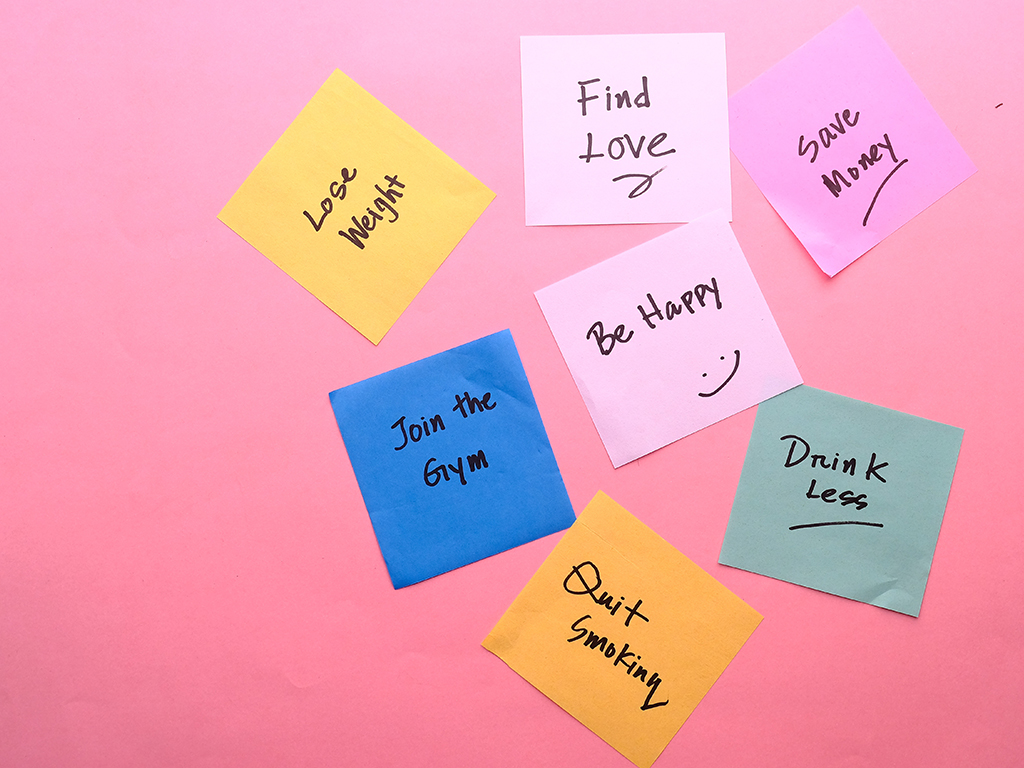 Find
Love
Save
Money
Lose
Weight
Be Happy
Join the
Gym
Drink
Less
Quit
Smoking